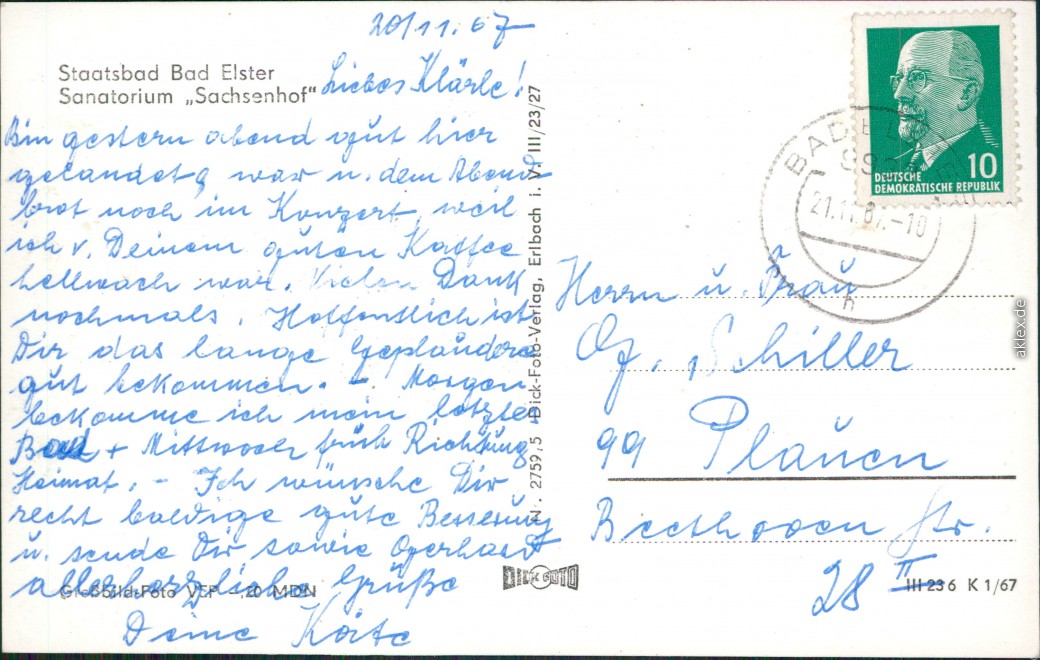 20/11.67
Staatsbad Bad Elster
Sanatorium „Sachsenhof"
Liebes Klärle!
Bin gestern abend gut hier
gelandet, war n. dem Abend
brot noch im Konzert, weil
ich v. Deinem guten Kaffee
hellwach war. Vielen Dank
nochmals. Hoffentlich ist
Dir das lange Geplaudere
gut bekommen. - Morgen
bekomme ich mein letztes
Bad + Mittwoch früh Richtung
Heimat. - Ich wünsche Dir
recht baldige gute Besserung
u. sende Dir sowie Gerhard
allerherzliche Grüße
Deine Käte
Großbild-Foto VEP -,20 MDN
Nr. 2759,5 Dick-Foto-Verlag, Erlbach i. V. III/23/27
DICK FOTO
10
DEUTSCHE
DEMOKRATISCHE REPUBLIK
BAD ELSTER
21.11.67.-10
h
Herrn u. Frau
G. Schiller
99 Plauen
Beethoven Str.
28 II
III 236 K 1/67
aklex.de